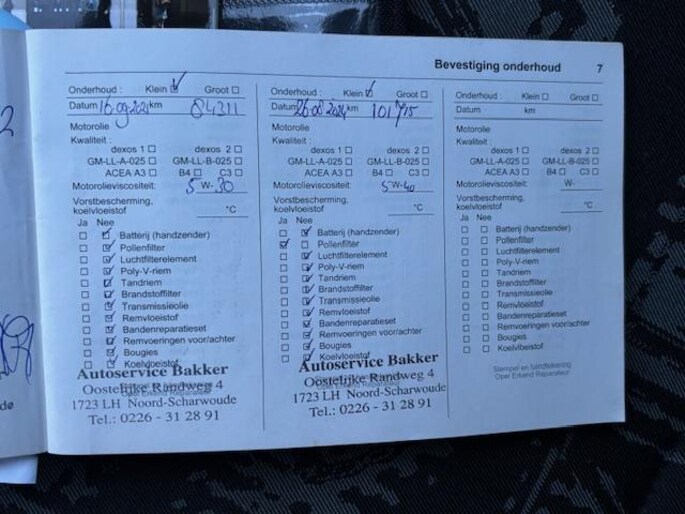 Bevestiging onderhoud 7
Onderhoud : Klein Groot
Datum 16 09-2021 km 84311
Motorolie
Kwaliteit :
dexos 1 dexos 2
GM-LL-A-025 GM-LL-B-025
ACEA A3 B4 C3
Motorolieviscositeit: 5 W- 30
Vorstbescherming,
koelvloeistof °C
Ja Nee
Batterij (handzender)
Pollenfilter
Luchtfilterelement
Poly-V-riem
Tandriem
Brandstoffilter
Transmissieolie
Remvloeistof
Bandenreparatieset
Remvoeringen voor/achter
Bougies
Koelvloeistof
Autoservice Bakker
Oostelijke Randweg 4
Opel Erkend Reparateur
1723 LH Noord-Scharwoude
Tel.: 0226 - 31 28 91
Onderhoud : Klein Groot
Datum 26-08 2024 km 101715
Motorolie
Kwaliteit :
dexos 1 dexos 2
GM-LL-A-025 GM-LL-B-025
ACEA A3 B4 C3
Motorolieviscositeit: 5 W- 40
Vorstbescherming,
koelvloeistof °C
Ja Nee
Batterij (handzender)
Pollenfilter
Luchtfilterelement
Poly-V-riem
Tandriem
Brandstoffilter
Transmissieolie
Remvloeistof
Bandenreparatieset
Remvoeringen voor/achter
Bougies
Koelvloeistof
Autoservice Bakker
Oostelijke Randweg 4
Opel Erkend Reparateur
1723 LH Noord-Scharwoude
Tel.: 0226 - 31 28 91
Onderhoud : Klein Groot
Datum km
Motorolie
Kwaliteit :
dexos 1 dexos 2
GM-LL-A-025 GM-LL-B-025
ACEA A3 B4 C3
Motorolieviscositeit: W-
Vorstbescherming,
koelvloeistof °C
Ja Nee
Batterij (handzender)
Pollenfilter
Luchtfilterelement
Poly-V-riem
Tandriem
Brandstoffilter
Transmissieolie
Remvloeistof
Bandenreparatieset
Remvoeringen voor/achter
Bougies
Koelvloeistof
Stempel en handtekening
Opel Erkend Reparateur